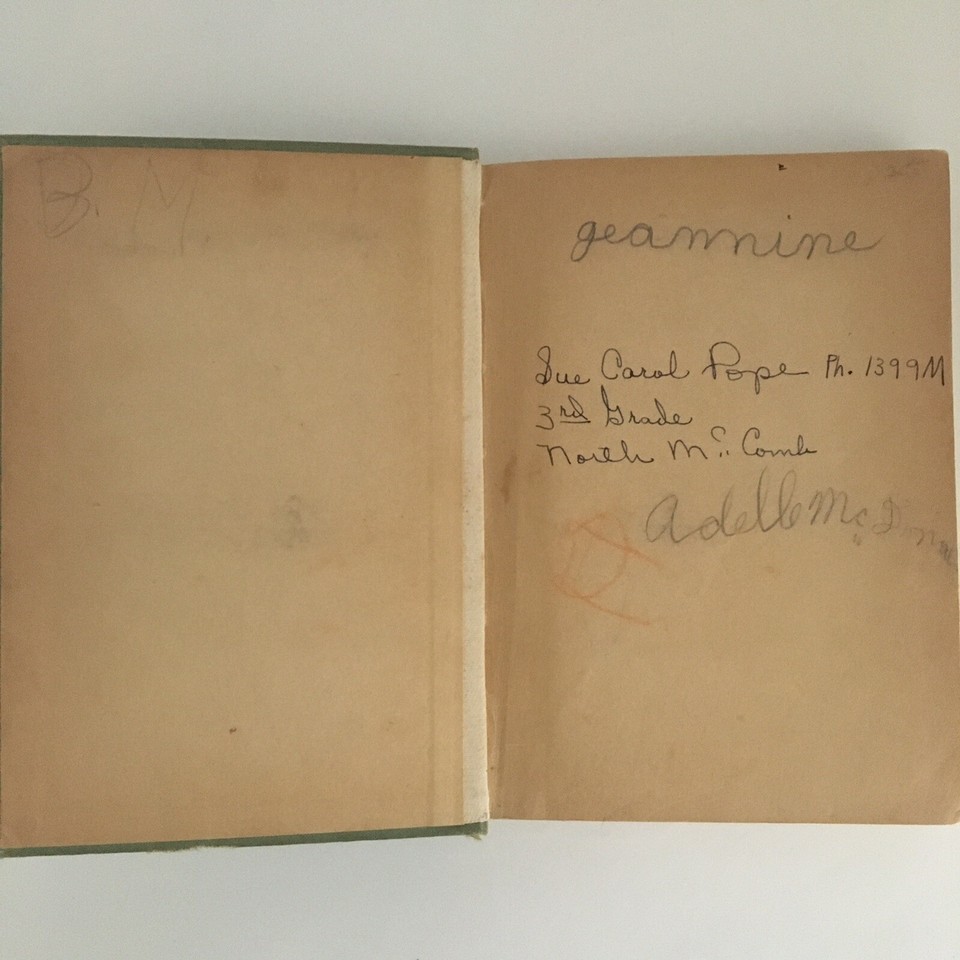 B. M
geannine
Sue Carol Pope Ph. 1399M
3rd Grade
North Mc Comb
Adelle Mc